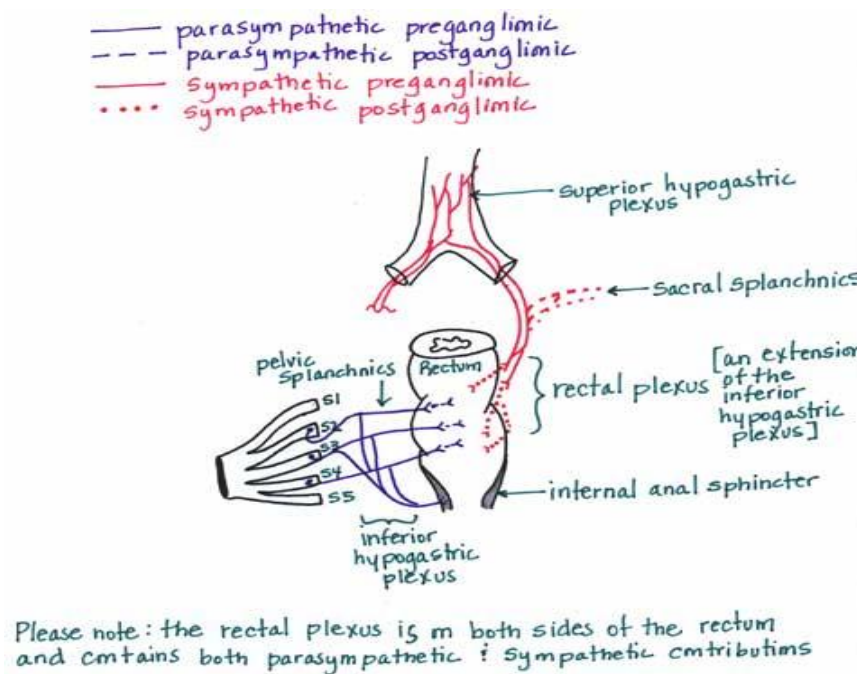 parasympathetic preganglionic
parasympathetic postganglionic
sympathetic preganglionic
sympathetic postganglionic
superior hypogastric
plexus
sacral splanchnics
pelvic
splanchnics
Rectum
rectal plexus
[an extension
of the
inferior
hypogastric
plexus]
S1
S2
S3
S4
S5
internal anal sphincter
inferior
hypogastric
plexus
Please note: the rectal plexus is on both sides of the rectum
and contains both parasympathetic & sympathetic contributions